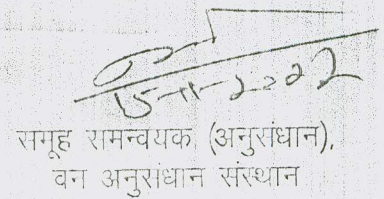 15-11-2022
समूह समन्वयक (अनुसंधान),
वन अनुसंधान संस्थान